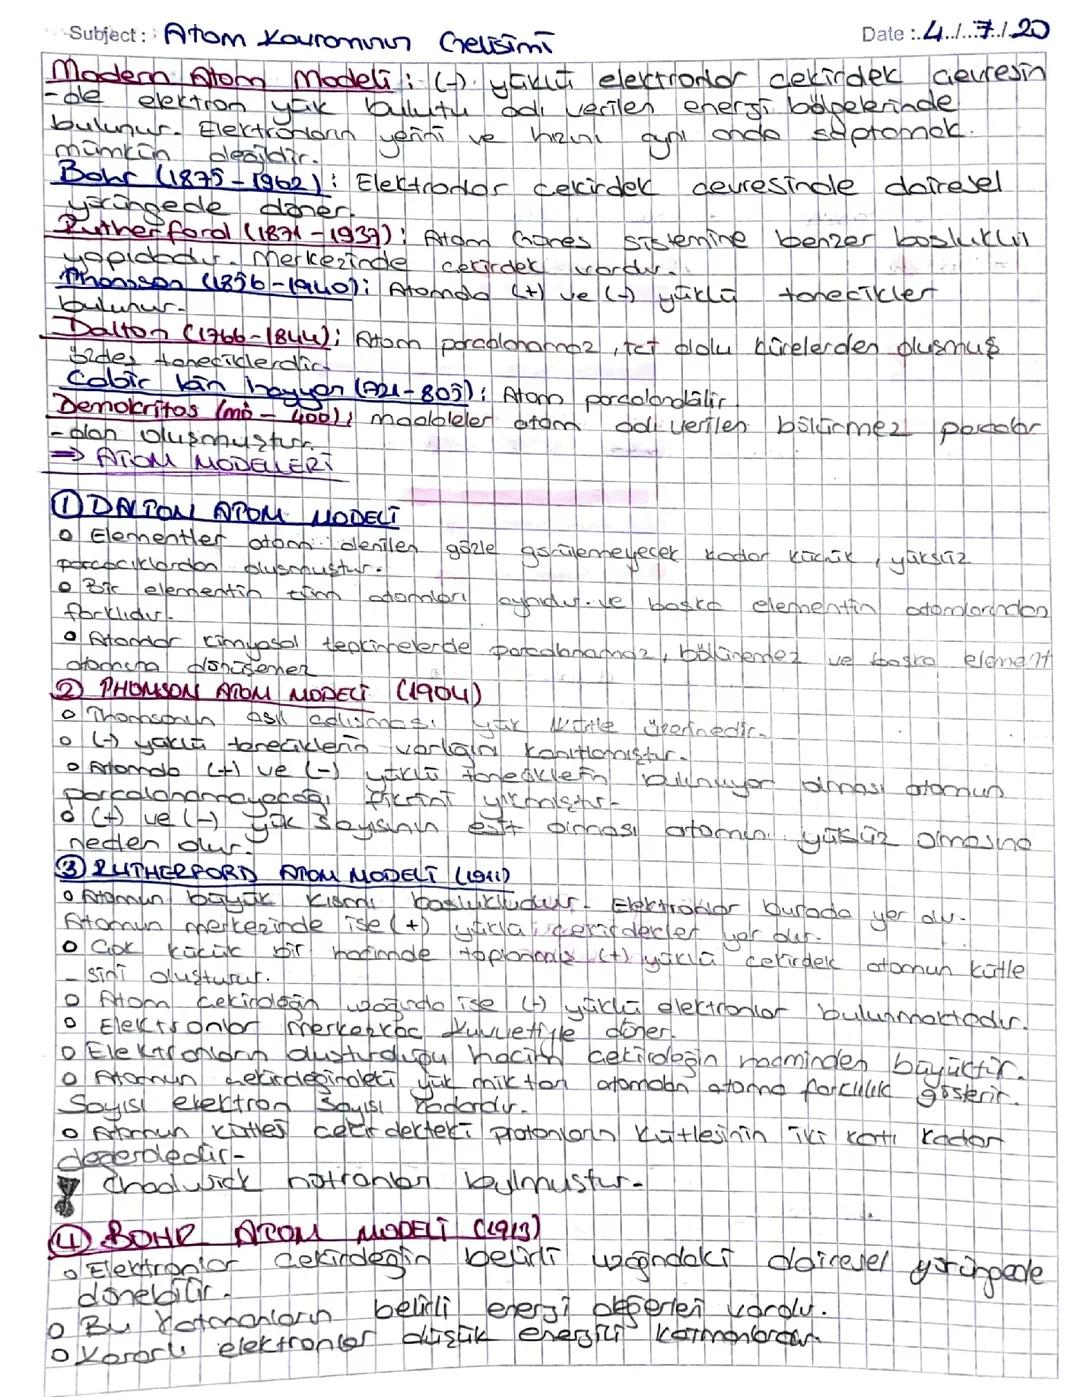 Subject: Atom Kavramının Gelişimi Date: 4/7/20
Modern Atom Modeli: (-) yüklü elektronlar çekirdek çevresin
-de elektron yük bulutu adı verilen enerji bölgelerinde
bulunur. Elektronların yerini ve hızını aynı anda saptamak
mümkün değildir.
Bohr (1875-1962): Elektronlar çekirdek çevresinde dairesel
yörüngede döner.
Rutherford (1871-1937): Atom Güneş sistemine benzer boşluklu
yapıdadır. Merkezinde çekirdek vardır.
Thomson (1856-1940): Atomda (+) ve (-) yüklü tanecikler
bulunur.
Dalton (1766-1844): Atom parçalanamaz, içi dolu kürelerden oluşmuş
taneciklerdir.
Cabir bin hayyan (721-805): Atom parçalanabilir.
Demokritos (mö - 400): maddeler atom adı verilen bölünmez parçalar
-dan oluşmuştur.
⇒ ATOM MODELLERİ
① DALTON ATOM MODELİ
o Elementler atom denilen gözle görülemeyecek kadar küçük, yüksüz
parçacıklardan oluşmuştur.
o Bir elementin tüm atomları aynıdır. ve başka elementin atomlarından
farklıdır.
o Atomlar kimyasal tepkimelerde parçalanamaz, bölünemez ve başka element
atomuna dönüşemez
② THOMSON ATOM MODELİ (1904)
o Thomsonun asıl çalışması yük kütle üzerinedir.
o (-) yüklü taneciklerin varlığını kanıtlamıştır.
o Atomda (+) ve (-) yüklü taneciklerin bulunuyor olması atomun
parçalanamayacağı fikrini yıkmıştır.
o (+) ve (-) yük sayısının eşit olması atomun yüksüz olmasına
neden olur.
③ RUTHERFORD ATOM MODELİ (1911)
o Atomun büyük kısmı boşlukludur. Elektronlar burada yer alır.
Atomun merkezinde ise (+) yüklü çekirdekler yer alır.
o Çok küçük bir hacimde toplanmış (+) yüklü çekirdek atomun kütle
-sini oluşturur.
o Atom çekirdeğin uzağında ise (-) yüklü elektronlar bulunmaktadır.
o Elektronlar merkezkaç kuvvetiyle döner.
o Elektronların oluşturduğu hacim çekirdeğin hacminden büyüktür.
o Atomun çekirdeğindeki yük miktarı atomdan atoma farklılık gösterir.
Sayısı elektron sayısı kadardır.
o Atomun kütlesi çekirdekteki protonların kütlesinin iki katı kadar
değerdedir-
Chadwick nötronları bulmuştur.
④ BOHR ATOM MODELİ (1913)
o Elektronlar çekirdeğin belirli uzağındaki dairesel yörüngede
dönebilir.
o Bu katmanların belirli enerji değerleri vardır.
o Kararlı elektronlar düşük enerjili katmanlardadır.